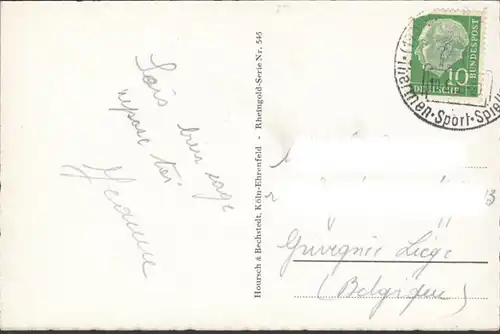 Sois bien sage
repose toi
Jeanne
Hoursch & Bechstedt, Köln-Ehrenfeld - Rheingold-Serie Nr. 546
10
DEUTSCHE
BUNDESPOST
Thermen · Sport · Spiel
Liège
(Belgien)